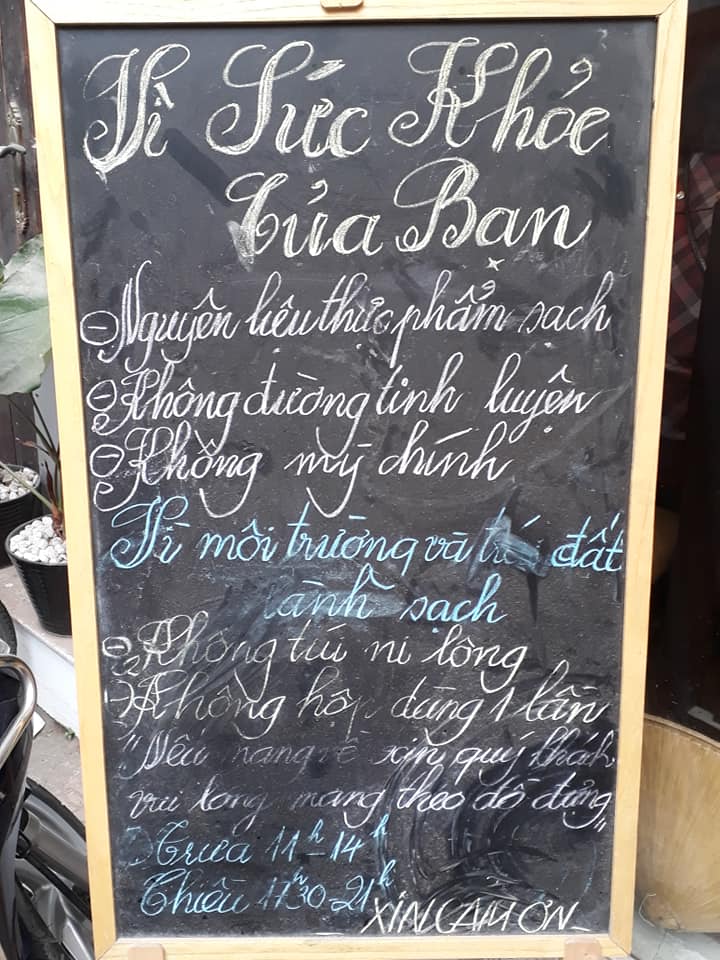 Vì Sức Khỏe
Của Bạn
- Nguyên liệu thực phẩm sạch
- Không đường tinh luyện
- Không mỳ chính
Vì môi trường và trái đất
lành sạch
- Không túi ni lông
- Không hộp dùng 1 lần
"Nếu mang về xin quý khách
vui lòng mang theo đồ đựng"
Trưa 11h-14h
Chiều 17h30-21h
XIN CẢM ƠN